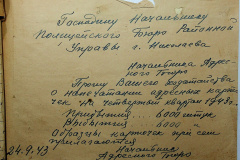 Господину Начальнику
Полицейского Бюро Районной
Управы г. Николаева
Начальника Адрес-
ного Бюро
Прошу Вашего ходатайства
о напечатании адресных карто-
чек на четвертый квартал 1943 г.
Прибытия... 6000 штук
Выбытия ... 6000
Образцы карточек при сем
прилагаются
24.9.43 Начальник
Адресного Бюро